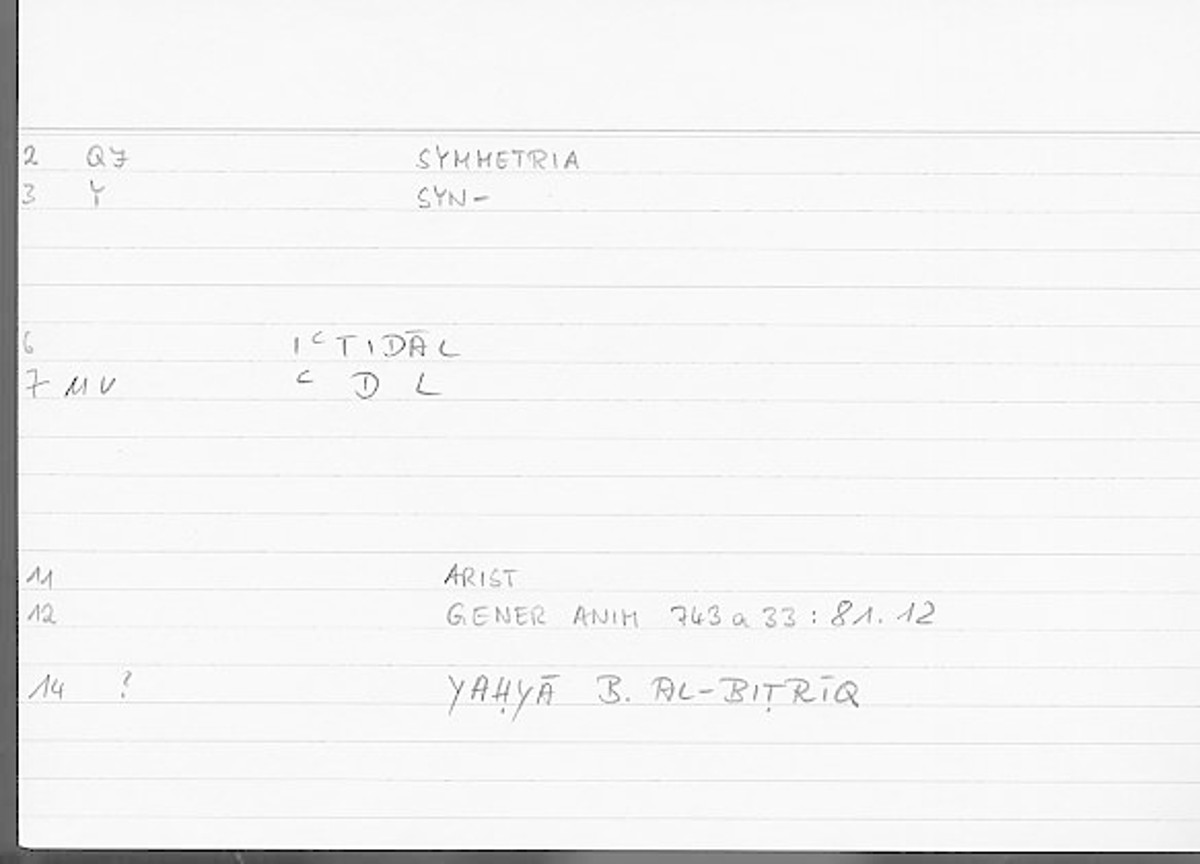 2 QF SYMMETRIA
3 Y SYN-
6 IʿTIDĀL
7 MV ʿ D L
11 ARIST
12 GENER ANIM 743 a 33 : 81. 12
14 ? YAḤYĀ B. AL-BIṬRĪQ